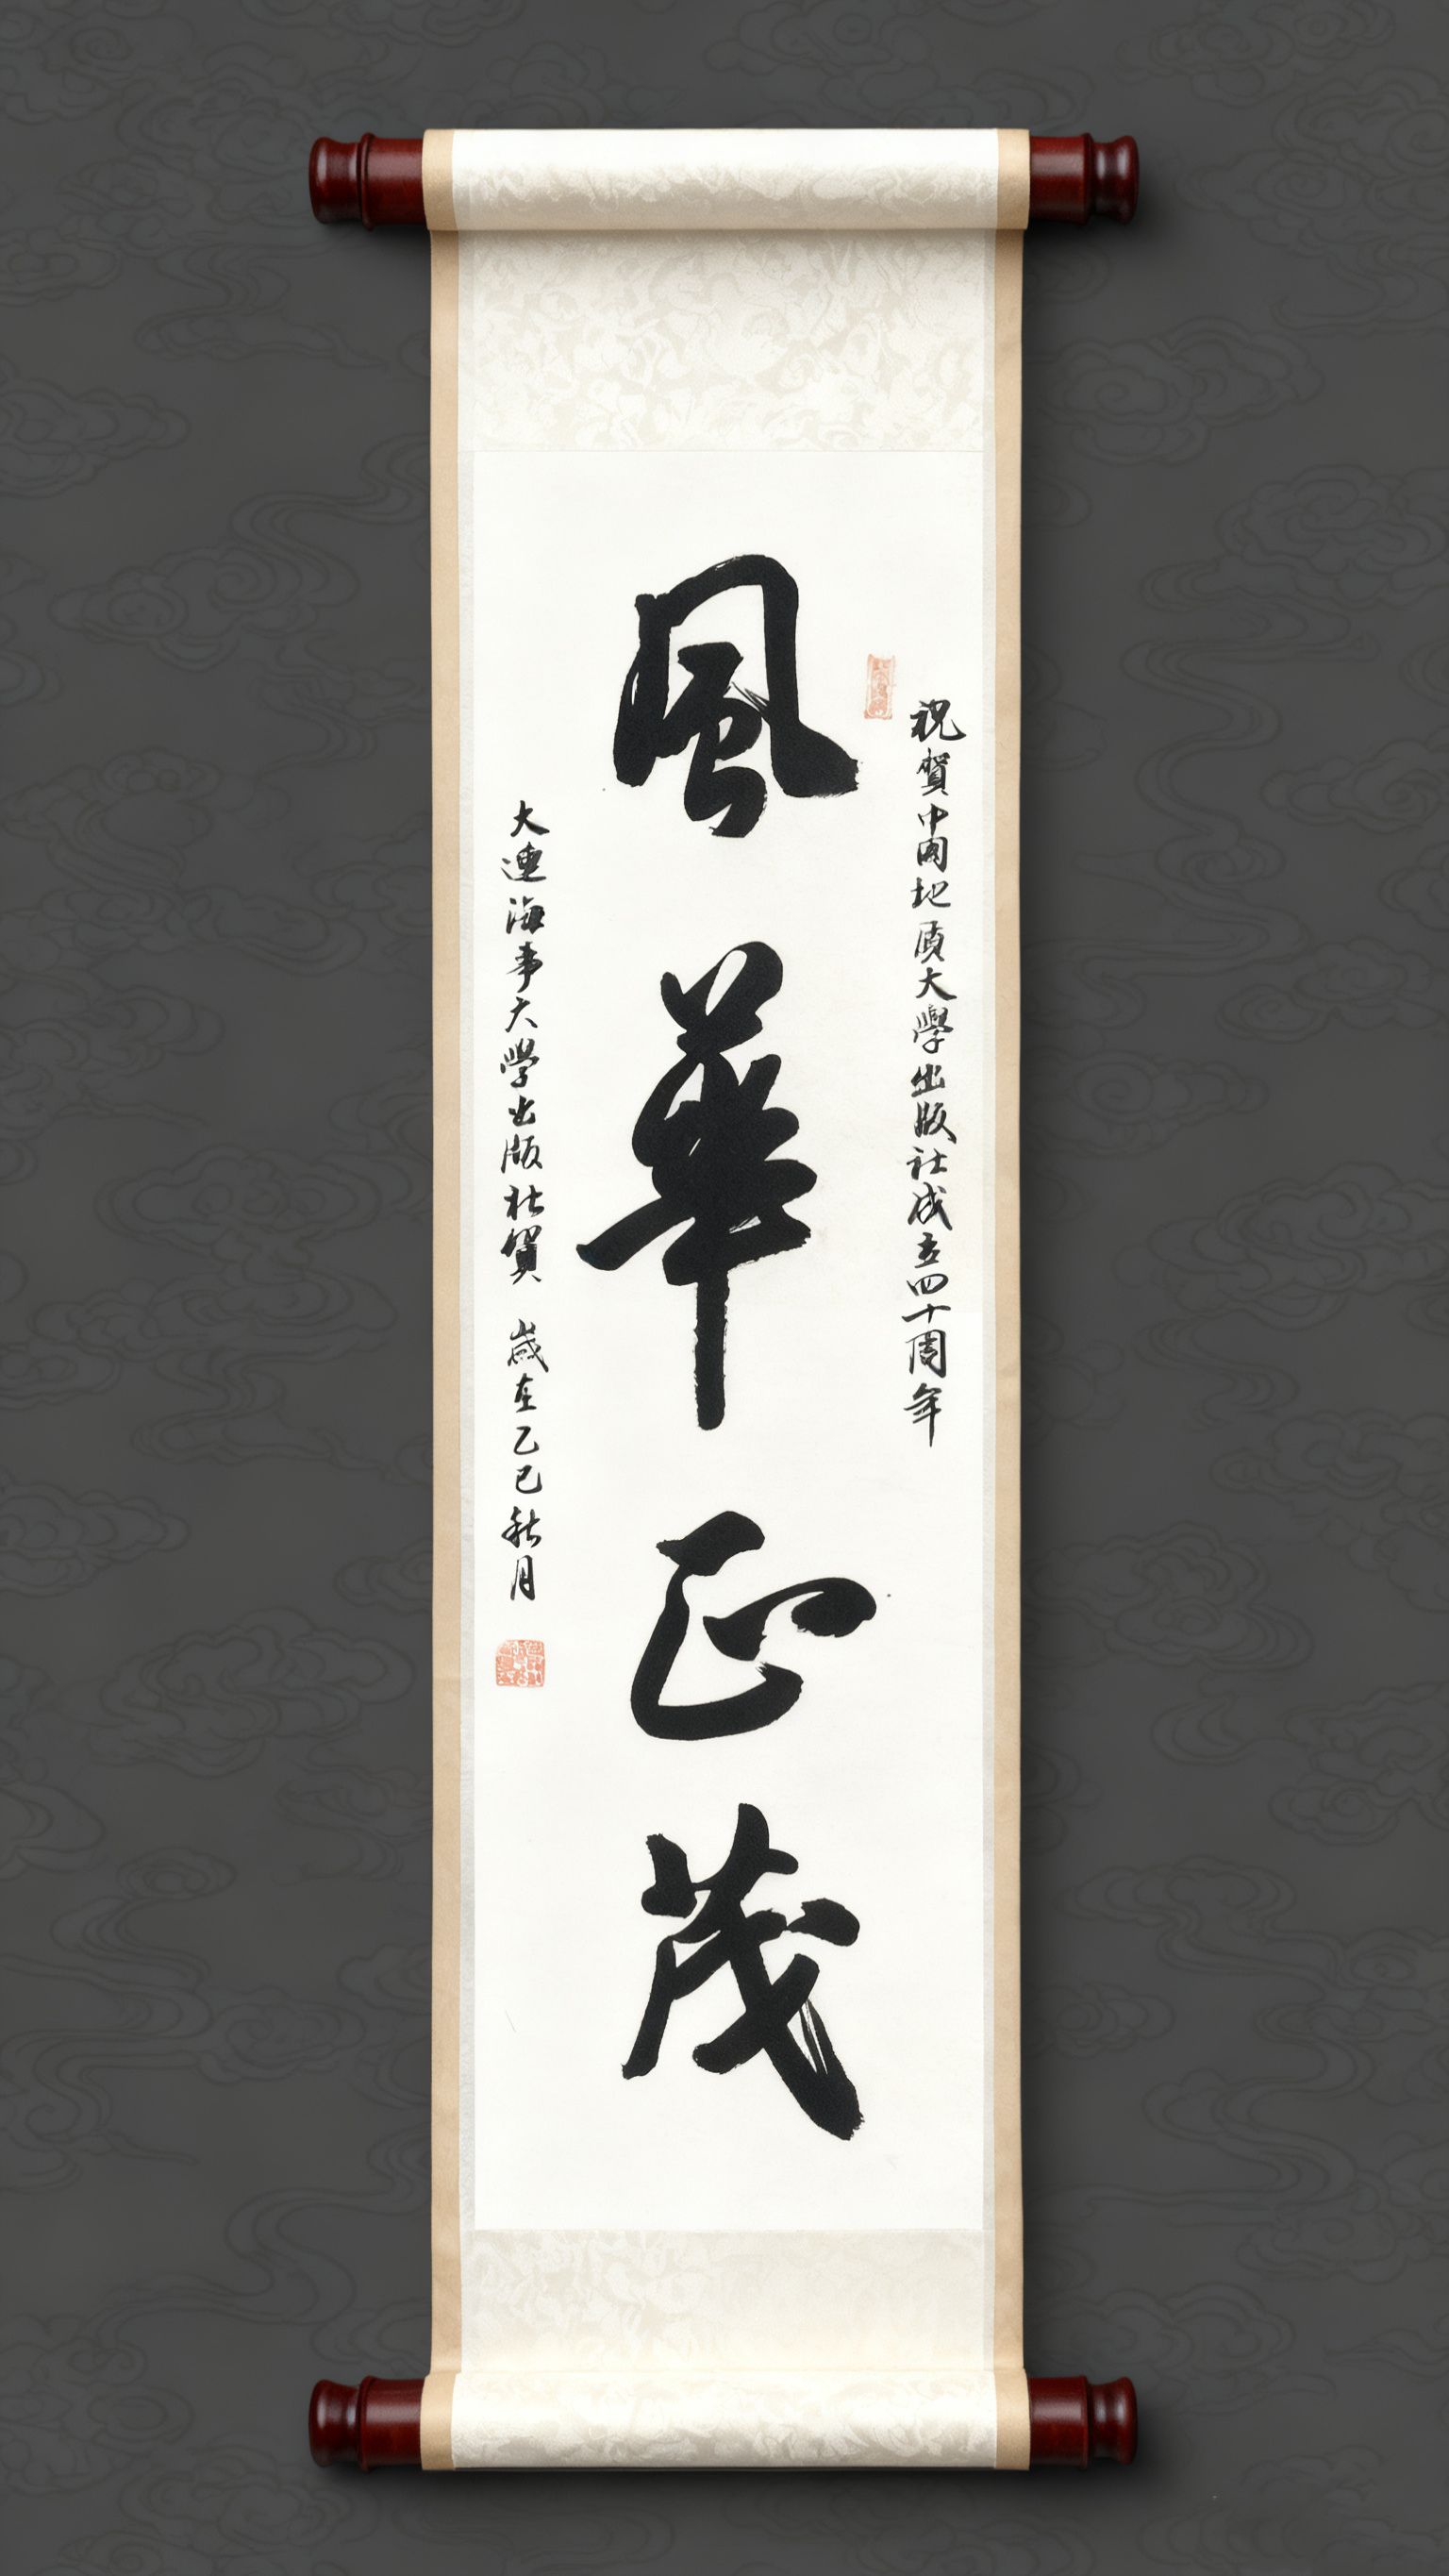 祝賀中国地质大學出版社成立四十周年
風華正茂
大連海事大學出版社賀 歲在乙巳秋月